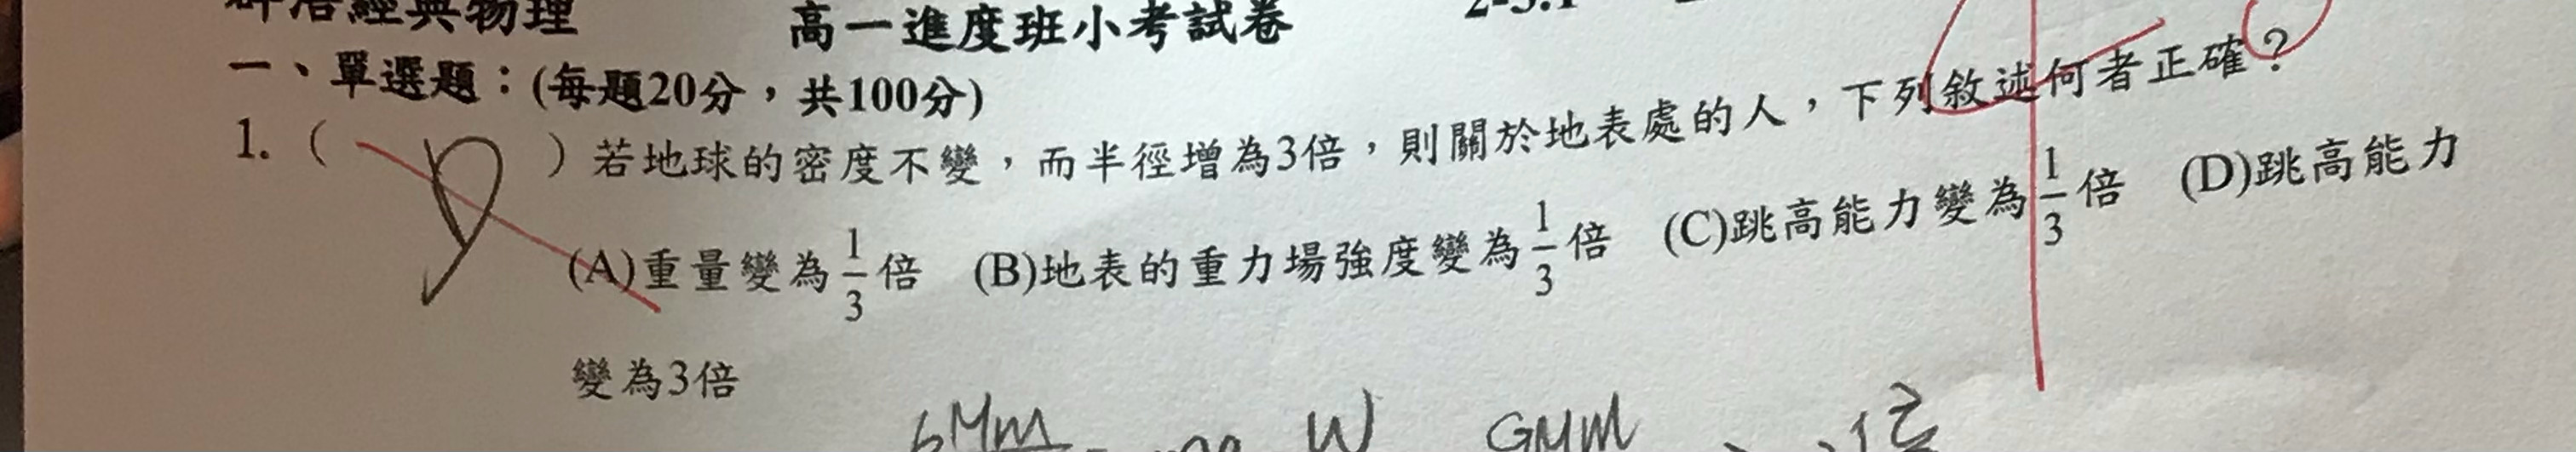 碎浴經典物理 高一進度班小考試卷
一、單選題：(每題20分，共100分)
1. ( ) 若地球的密度不變，而半徑增為3倍，則關於地表處的人，下列敘述何者正確？
(A)重量變為1/3倍 (B)地表的重力場強度變為1/3倍 (C)跳高能力變為1/3倍 (D)跳高能力
變為3倍
GMm W GMm